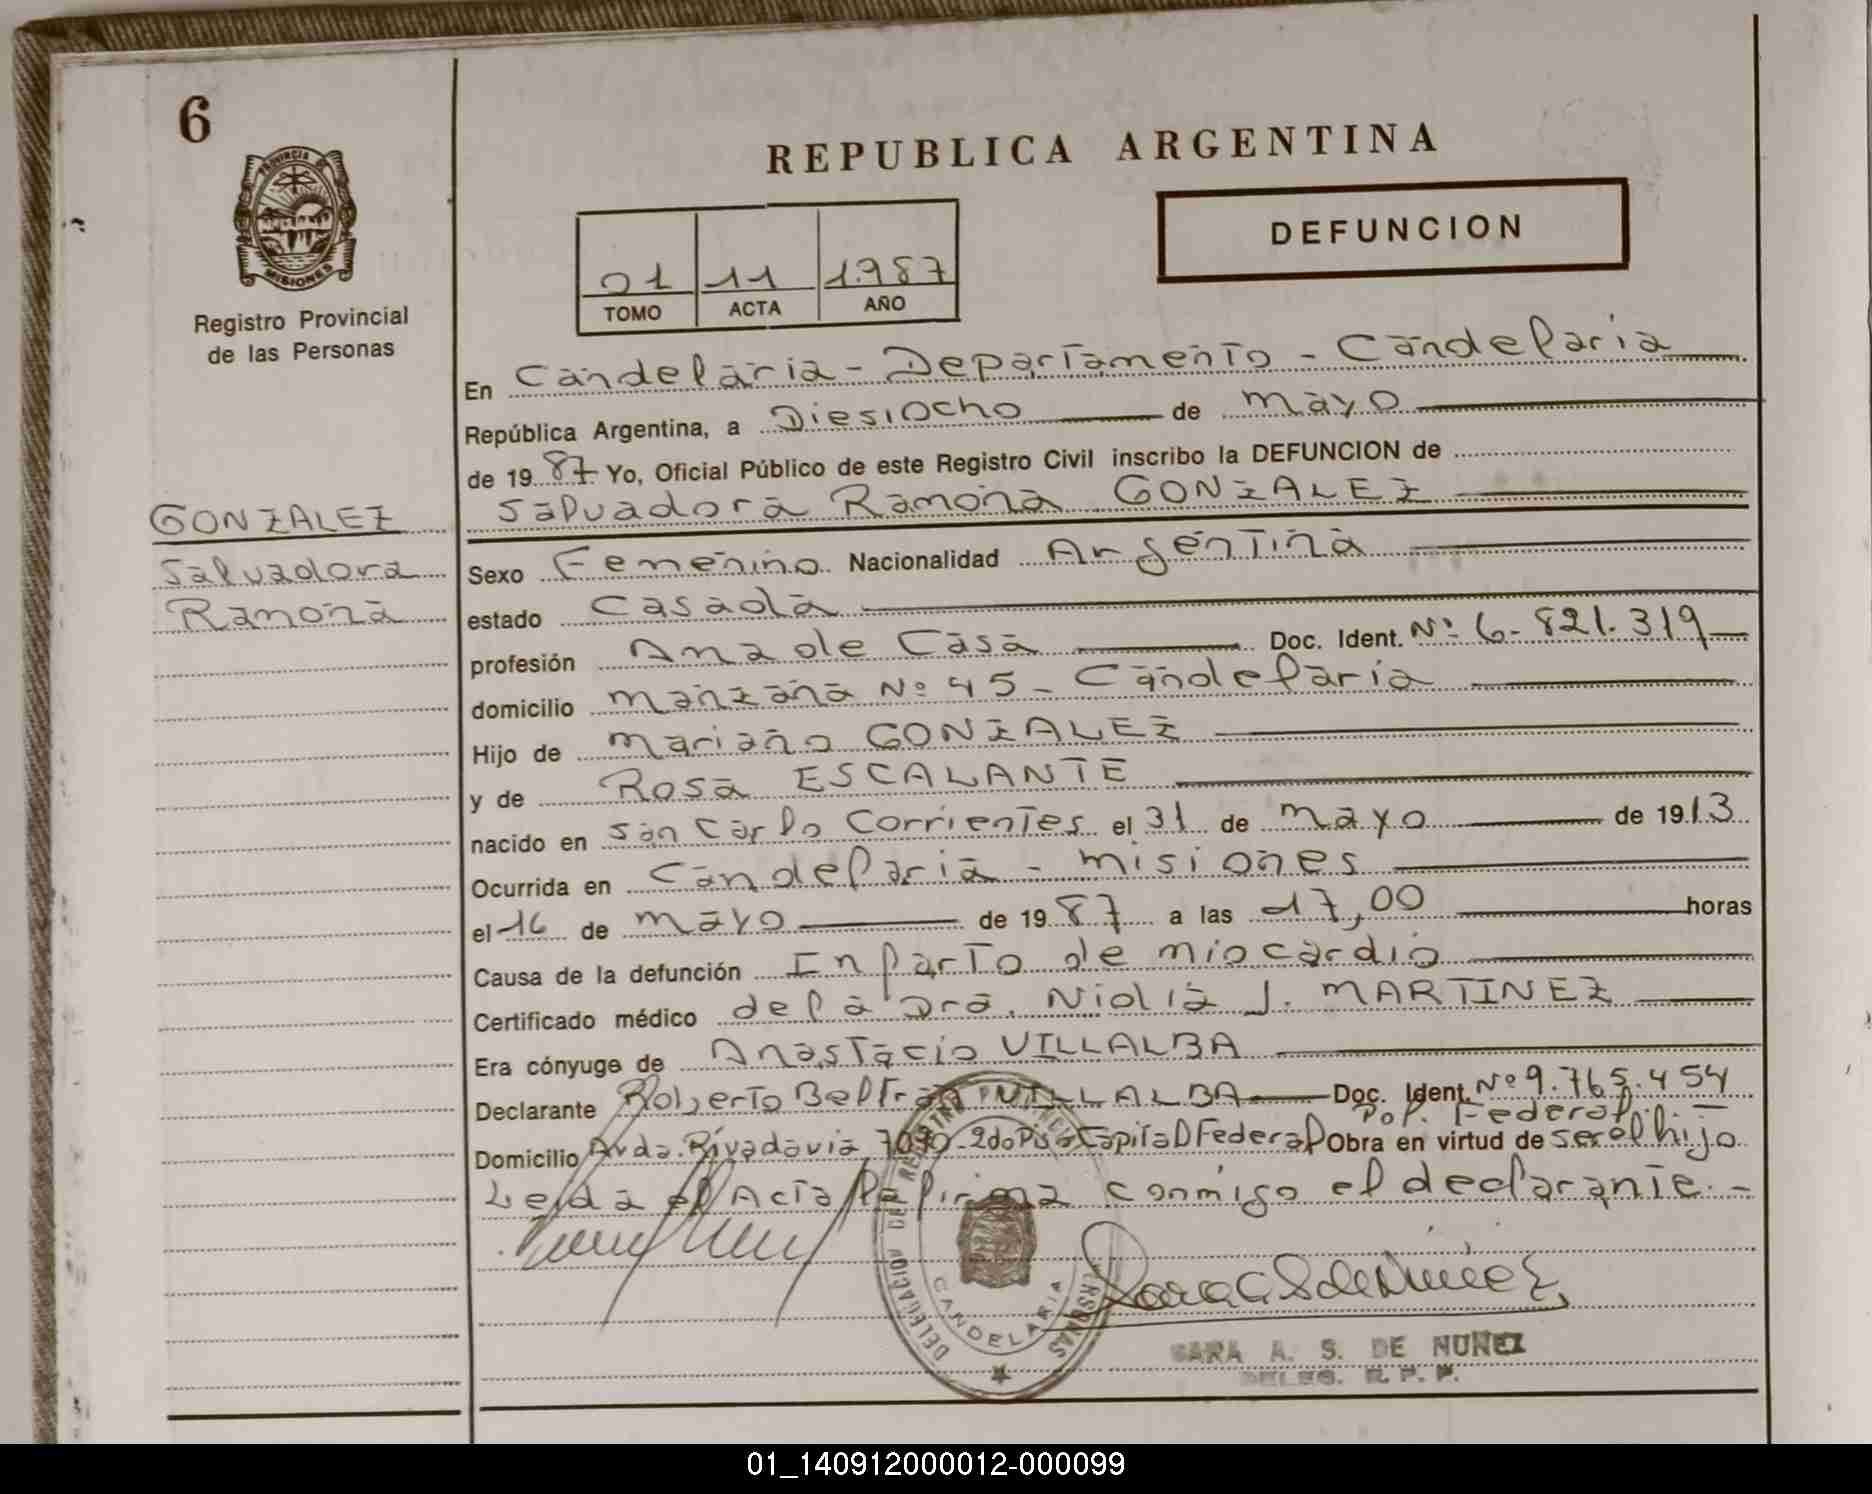 6
PROVINCIA DE
MISIONES
Registro Provincial
de las Personas
REPUBLICA ARGENTINA
DEFUNCION
01 11 1.987
TOMO ACTA AÑO
En Candelaria - Departamento - Candelaria
República Argentina, a Diesiocho de mayo
de 19 87 Yo, Oficial Público de este Registro Civil inscribo la DEFUNCION de
Salvadora Ramona GONZALEZ
GONZALEZ
Salvadora
Ramona
Sexo Femenino Nacionalidad Argentina
estado Casada
profesión Ama de Casa Doc. Ident. Nº 6-821.319
domicilio manzana Nº 45 - Candelaria
Hijo de mariano GONZALEZ
y de Rosa ESCALANTE
nacido en San Carlo Corrientes el 31 de mayo de 1913
Ocurrida en Candelaria - misiones
el 16 de mayo de 19 87 a las 17,00 horas
Causa de la defunción Infarto de miocardio
Certificado médico de la Dra. Nidia J. MARTINEZ
Era cónyuge de Anastacio VILLALBA
Declarante Roberto Beltran VILLALBA Doc. Ident. Nº 9.765.454
Pol. Federal
Domicilio Avda. Rivadavia 7090 - 2do Piso Capital Federal Obra en virtud de ser el hijo
Leida el Acta la firma conmigo el declarante. -
DELEGACION DEL REGISTRO PROVINCIAL PERSONAS
CANDELARIA
SARA A. S. DE NUÑEZ
DELEG. R. P. P.
01_140912000012-000099